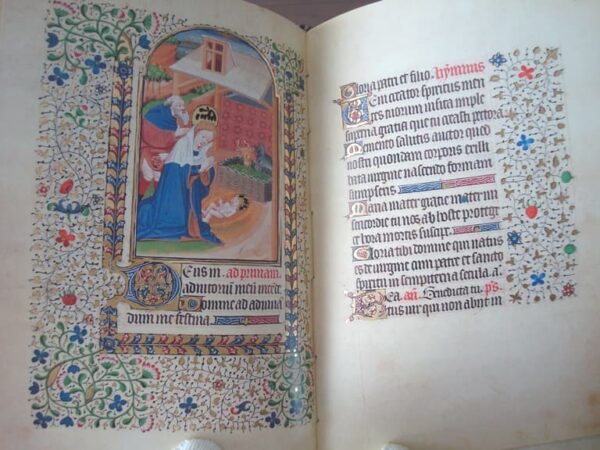 Eus in ad primam
adiutoriū meū inte
Domine ad adiuua
dium me festina
Gloria patri et filio ymnus
Eni creator spiritus men
tes tuorum visita imple
superna gratia que tu creasti pectora
Memento salutis auctor quod
nostri quondam corporis ex illi
bata virgine nascendo formam
sumpseris
Maria mater gratie mater mi
sericordie tu nos ab hoste protege
et hora mortis suscipe
Gloria tibi domine qui natus
es de virgine cum patre et sancto
spiritu in sempiterna secula a
ea Benedicta tu ps
eatus vir qui non abiit in